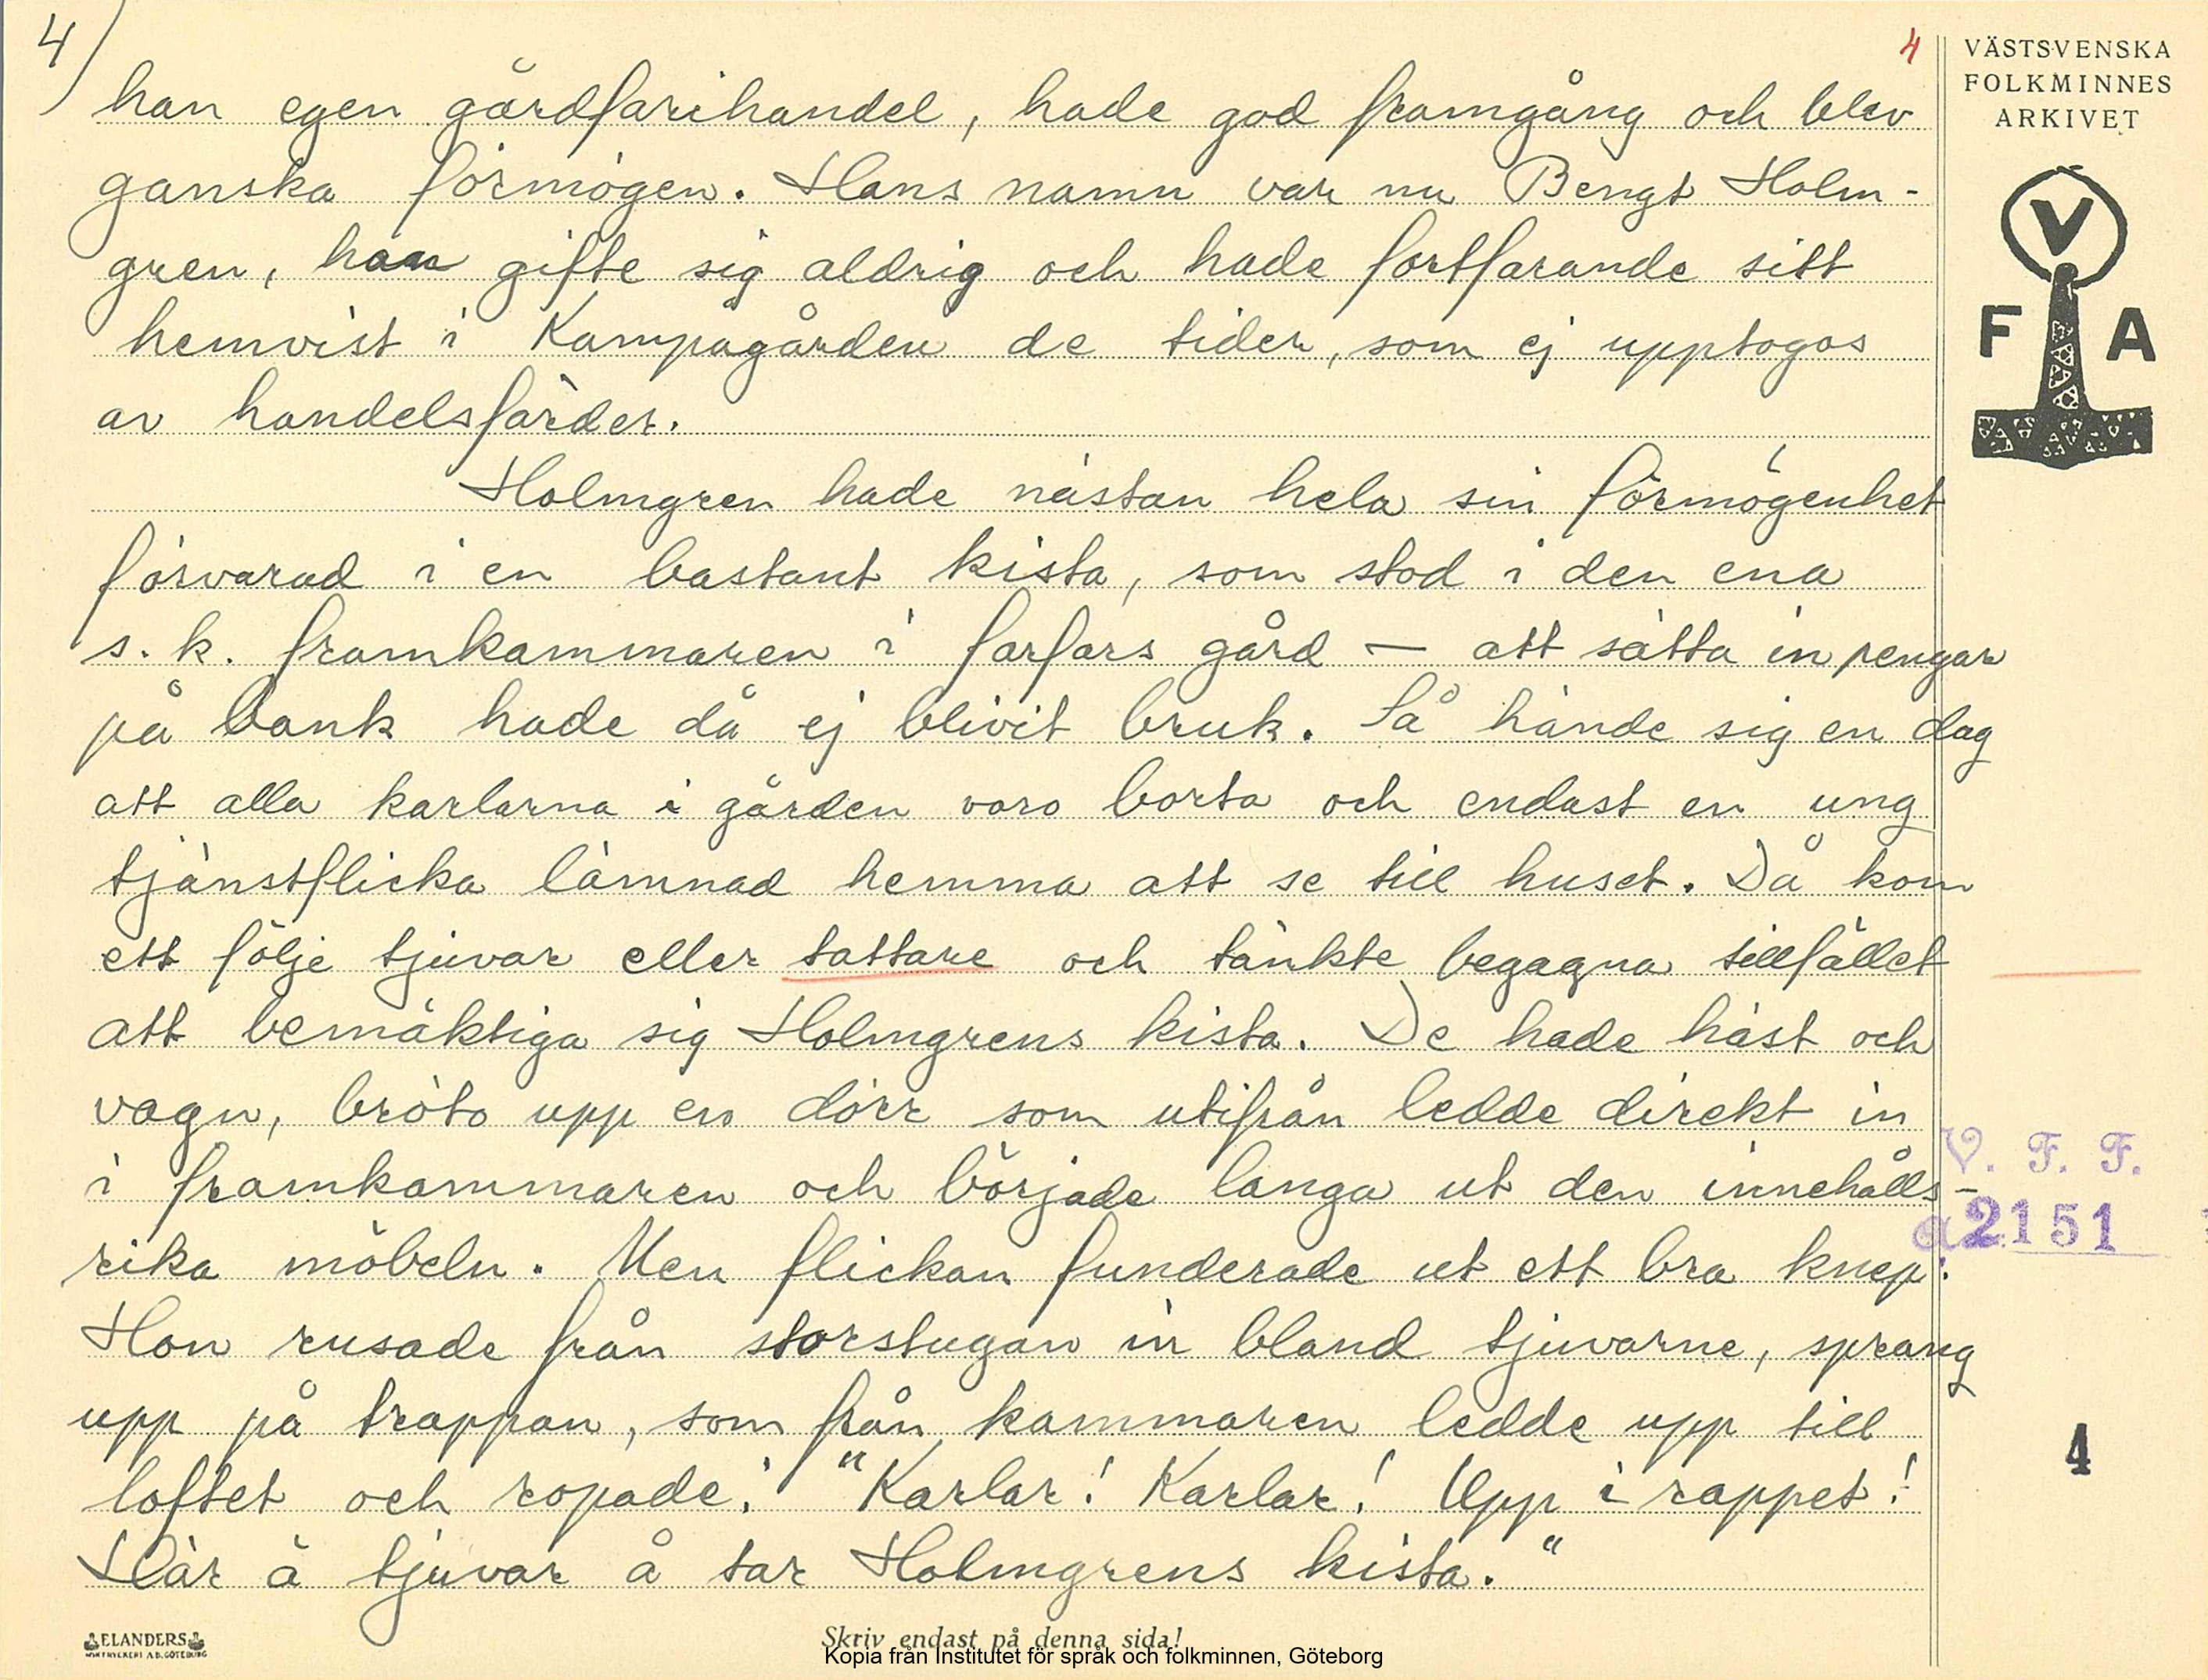 4/
4
VÄSTSVENSKA
FOLKMINNES
ARKIVET
V
F A
han egen gårdfarihandel, hade god framgång och blev
ganska förmögen. Hans namn var nu Bengt Holm-
gren, han gifte sig aldrig och hade fortfarande sitt
hemvist i Kampagården de tider, som ej upptogos
av handelsfärder.
Holmgren hade nästan hela sin förmögenhet
förvarad i en bastant kista, som stod i den ena
s. k. framkammaren i farfars gård — att sätta in pengar
på bank hade då ej blivit bruk. Så hände sig en dag
att alla karlarna i gården voro borta och endast en ung
tjänstflicka lämnad hemma att se till huset. Då kom
ett följe tjuvar eller tattare och tänkte begagna tillfället
att bemäktiga sig Holmgrens kista. De hade häst och
vagn, bröto upp en dörr som utifrån ledde direkt in
i framkammaren och började langa ut den innehålls-
rika möbeln. Men flickan funderade ut ett bra knep.
Hon rusade från storstugan in bland tjuvarne, sprang
upp på trappan, som från kammaren ledde upp till
loftet och ropade: "Karlar! Karlar! Upp i rappet!
Här ä tjuvar å tar Holmgrens kista."
V. F. F.
a2151
4
ELANDERS
BOKTRYCKERI A.B. GÖTEBORG
Skriv endast på denna sida!
Kopia från Institutet för språk och folkminnen, Göteborg